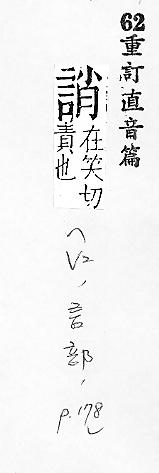 62重訂直音篇
誚在笑切
責也
(V2,言部,
p.178)